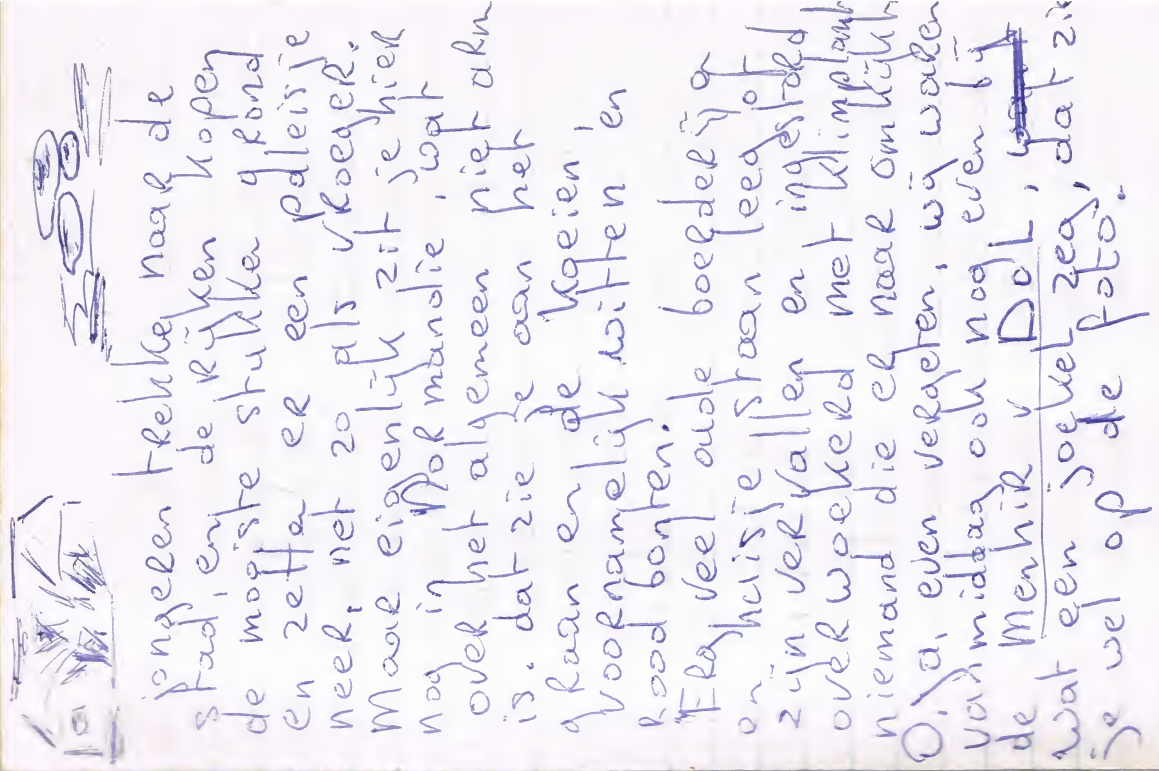 jongeren trekke, naar de
stad, en de rijken kopen
de mooiste stukken grond
en zetten er een paleisje
neer, net 20 als vroeger.
Maar eigenlijk zit je hier
nog in Normandie, wat
over het algemeen niet arm
is. dat zie je aan het
graan en de koeien,
voornamelijk witten en
Rood bonten.
Erg veel oude boerderij
en huisje staan leeg of
zijn vervallen en ingestord
overwoekerd met klimplant
niemand die er naar omkijkt
O, ja, even vergeten, wij waren
vanmiddag ook nog even bij
de Menhir v DOL,
wat een joekel zeg, dat zie
je wel op de foto.